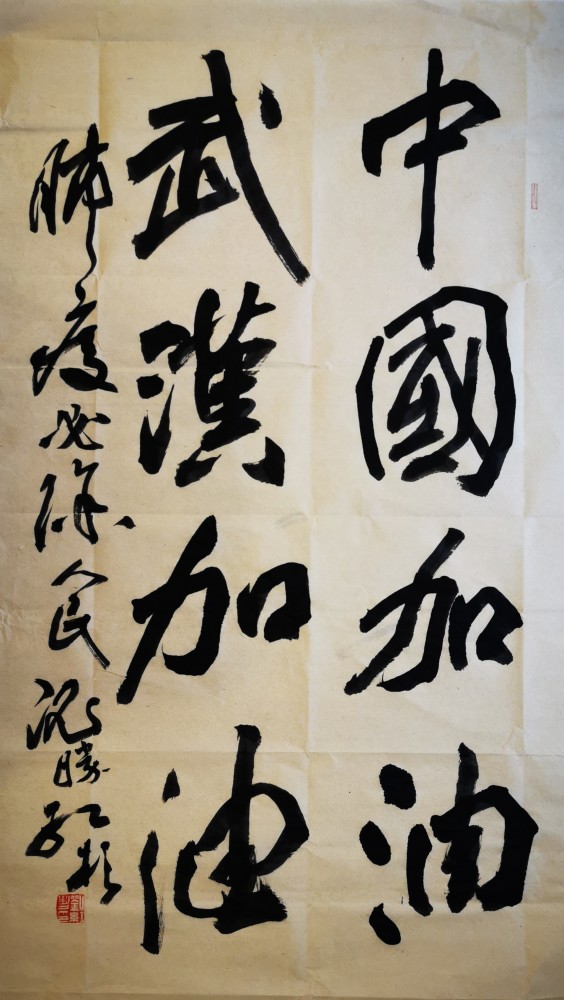 中國加油
武漢加油
肺疫必除人民